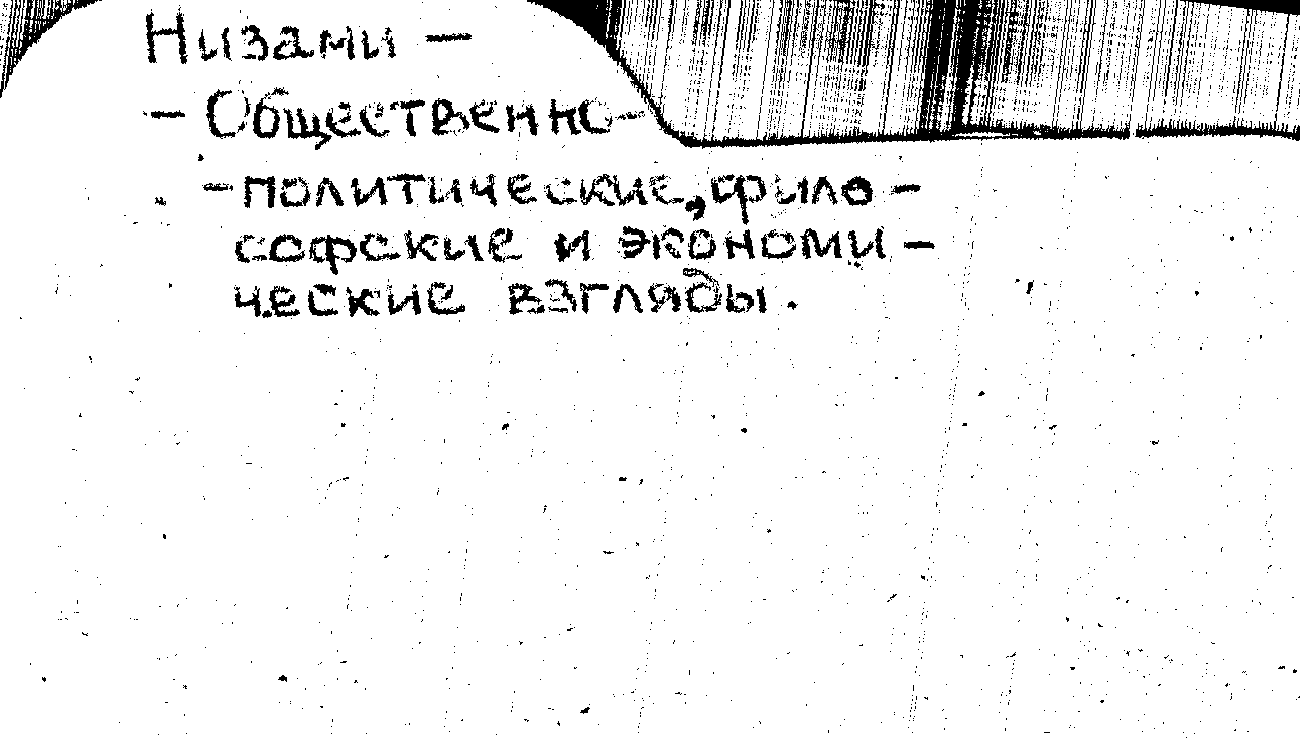 Низами —
— Общественно-
-политические, фило-
софские и экономи-
ческие взгляды.